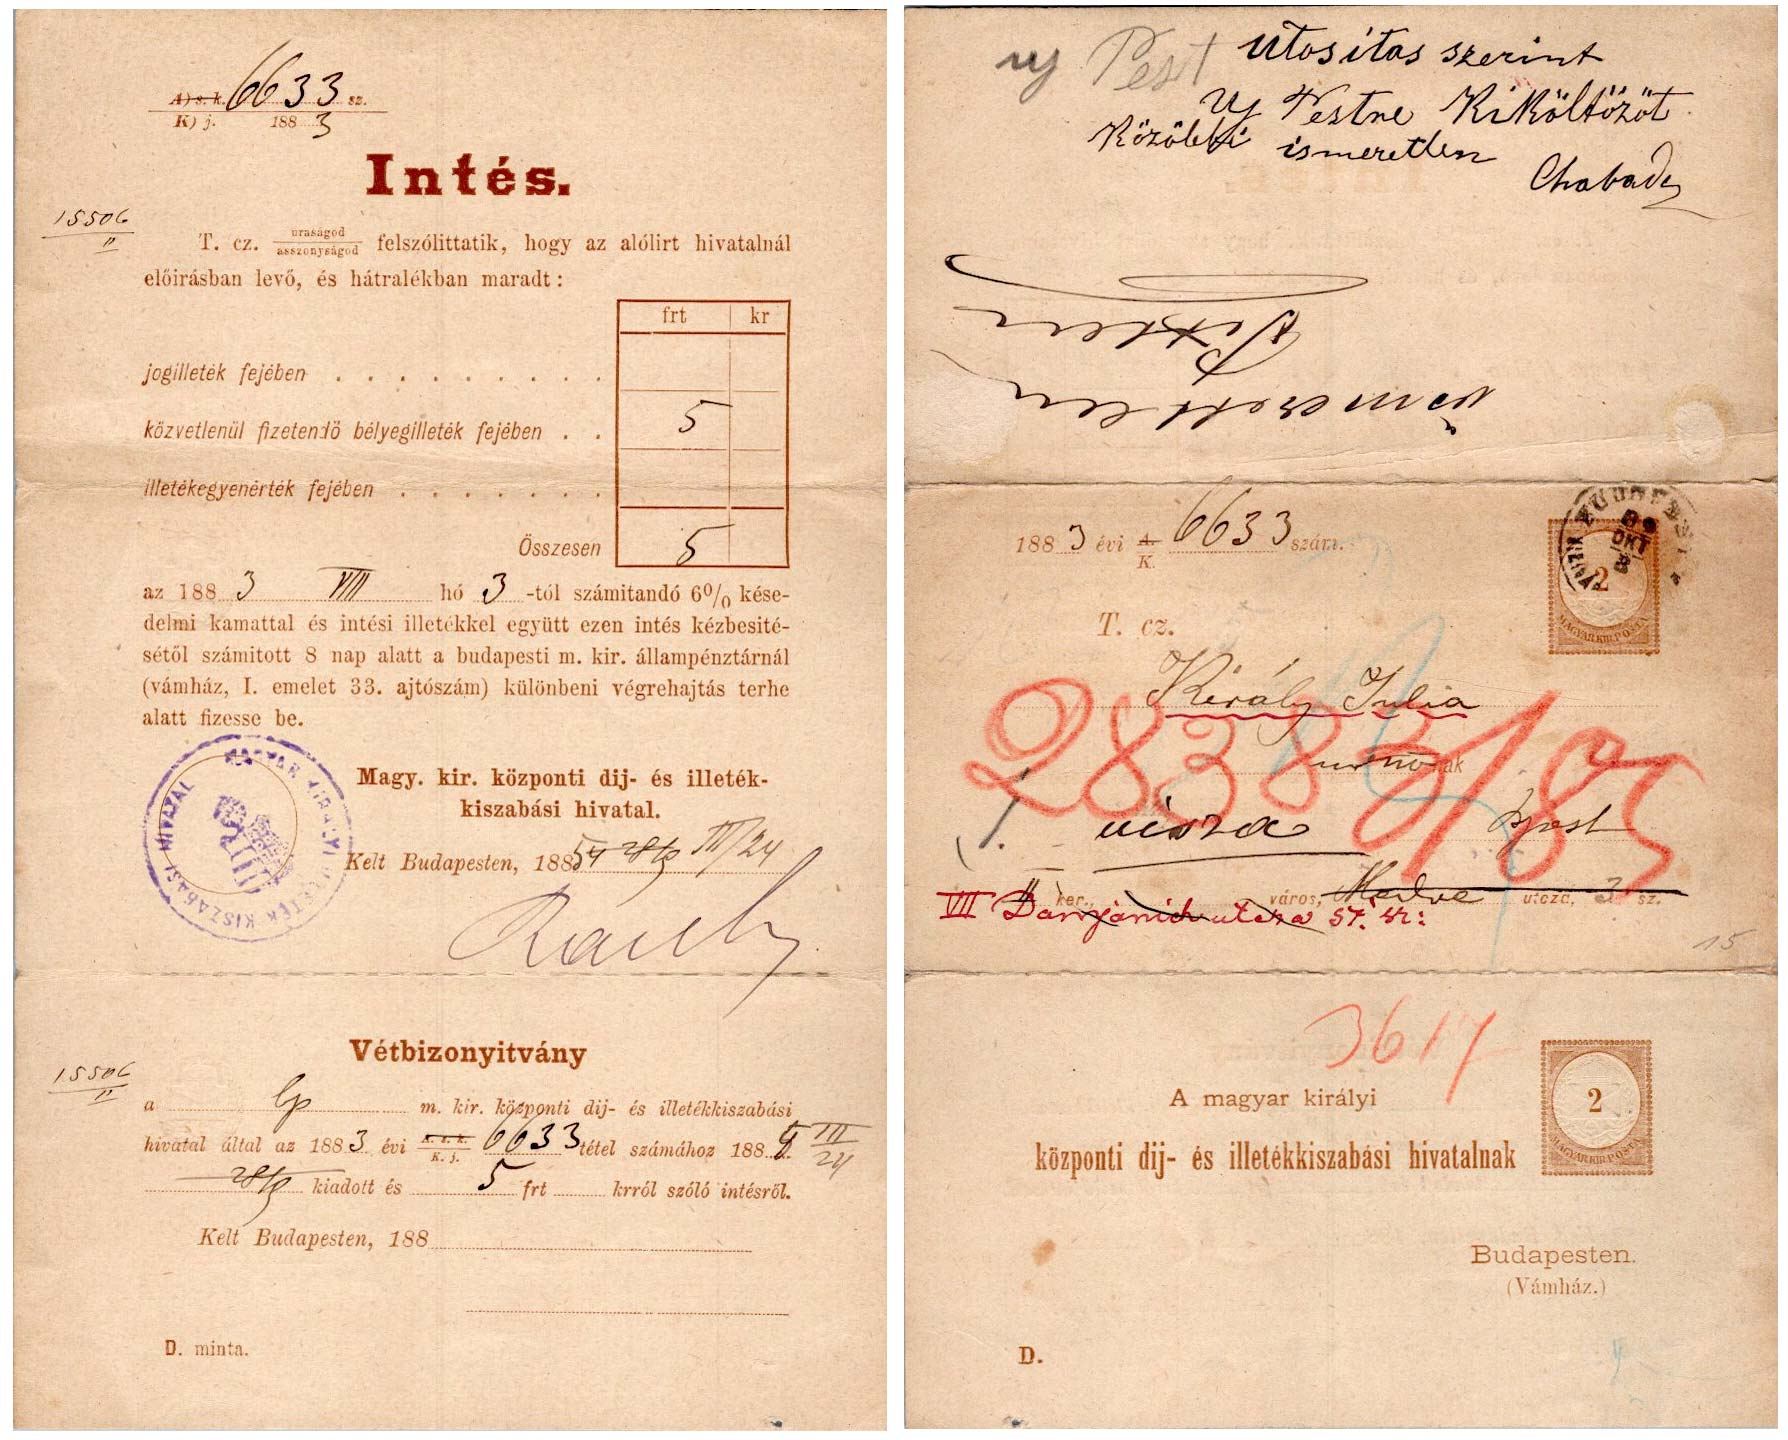 A) s. k. 6633 sz.
K) j. 1883
Intés.
15506
II
T. cz. uraságod
asszonyságod felszólittatik, hogy az alólirt hivatalnál
előirásban levő, és hátralékban maradt:
frt kr
jogilleték fejében . . . . . . . . . .
közvetlenül fizetendő bélyegilleték fejében . . 5
illetékegyenérték fejében . . . . . . .
Összesen 5
az 1883 VIII hó 3-tól számitandó 6% kése-
delmi kamattal és intési illetékkel együtt ezen intés kézbesité-
sétől számitott 8 nap alatt a budapesti m. kir. állampénztárnál
(vámház, I. emelet 33. ajtószám) különbeni végrehajtás terhe
alatt fizesse be.
Magy. kir. központi dij- és illeték-
kiszabási hivatal.
Kelt Budapesten, 188 III/24
MAGYAR KIRÁLYI ILLETÉK KISZABÁSI HIVATAL
Vétbizonyitvány
15506
II
a m. kir. központi dij- és illetékkiszabási
hivatal által az 1883 évi K. s. k.
K. j. 6633 tétel számához 188 III
24
kiadott és 5 frt krról szóló intésről.
Kelt Budapesten, 188
D. minta.
uj Pest utositas szerint
Uj Pestre Kiköltözöt
Közölebbi ismeretlen
ismeretlen
1883 évi A.
K. 6633 szám.
BUDAPEST
OKT
2
MAGYAR KIR. POSTA
T. cz.
Király Julia
urnő nak
28383/85
1. visza Bpest
II ker., város, Medve utcza, 3 sz.
VII Damjanich utcza 57. sz:
15
3617
2
MAGYAR KIR. POSTA
A magyar királyi
központi dij- és illetékkiszabási hivatalnak
Budapesten.
(Vámház.)
D.